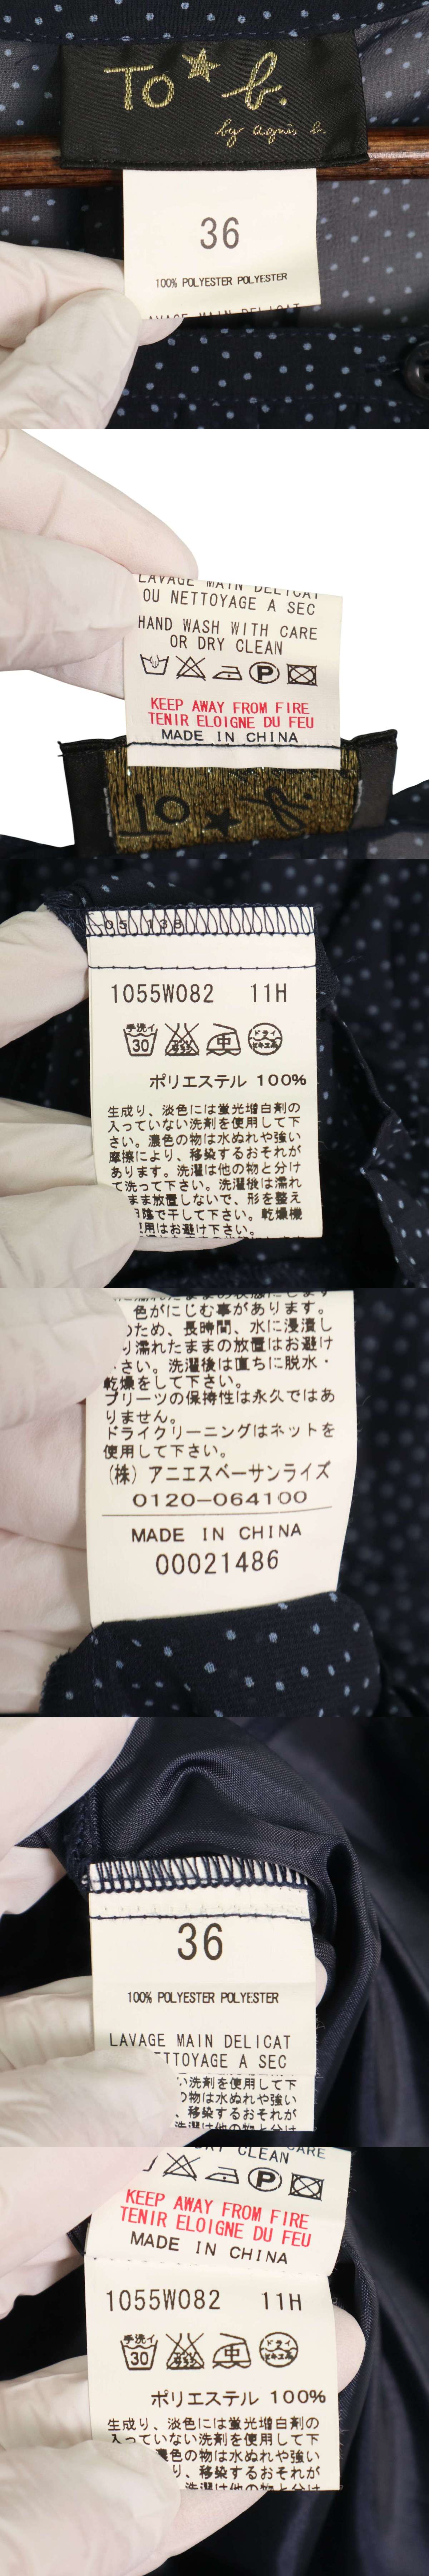 To★b.
by agnès b.
36
100% POLYESTER POLYESTER
LAVAGE MAIN DELICAT
LAVAGE MAIN DELICAT
OU NETTOYAGE A SEC
HAND WASH WITH CARE
OR DRY CLEAN
P
KEEP AWAY FROM FIRE
TENIR ELOIGNE DU FEU
MADE IN CHINA
To★b.
1055W082 11H
手洗イ 30 エンソサラシ 中 ドライ セキユ系
ポリエステル 100%
生成り、淡色には蛍光増白剤の
入っていない洗剤を使用して下
さい。濃色の物は水ぬれや強い
摩擦により、移染するおそれが
あります。洗濯は他の物と分け
て洗って下さい。洗濯後は濡れ
まま放置しないで、形を整え
日陰で干して下さい。乾燥機
用はお避け下さい。
色がにじむ事があります。
のため、長時間、水に浸漬し
り濡れたままの放置はお避け
さい。洗濯後は直ちに脱水・
乾燥をして下さい。
プリーツの保持性は永久ではあ
りません。
ドライクリーニングはネットを
使用して下さい。
(株) アニエスベーサンライズ
0120-064100
MADE IN CHINA
00021486
36
100% POLYESTER POLYESTER
LAVAGE MAIN DELICAT
TTOYAGE A SEC
い洗剤を使用して下
の物は水ぬれや強い
、移染するおそれが
洗濯は他の物と分け
CARE
DRY CLEAN
P
KEEP AWAY FROM FIRE
TENIR ELOIGNE DU FEU
MADE IN CHINA
1055W082 11H
手洗イ 30 エンソサラシ 中 ドライ セキユ系
ポリエステル 100%
生成り、淡色には蛍光増白剤の
入っていない洗剤を使用して下
濃色の物は水ぬれや強い
り、移染するおそれが
洗濯は他の物と分け